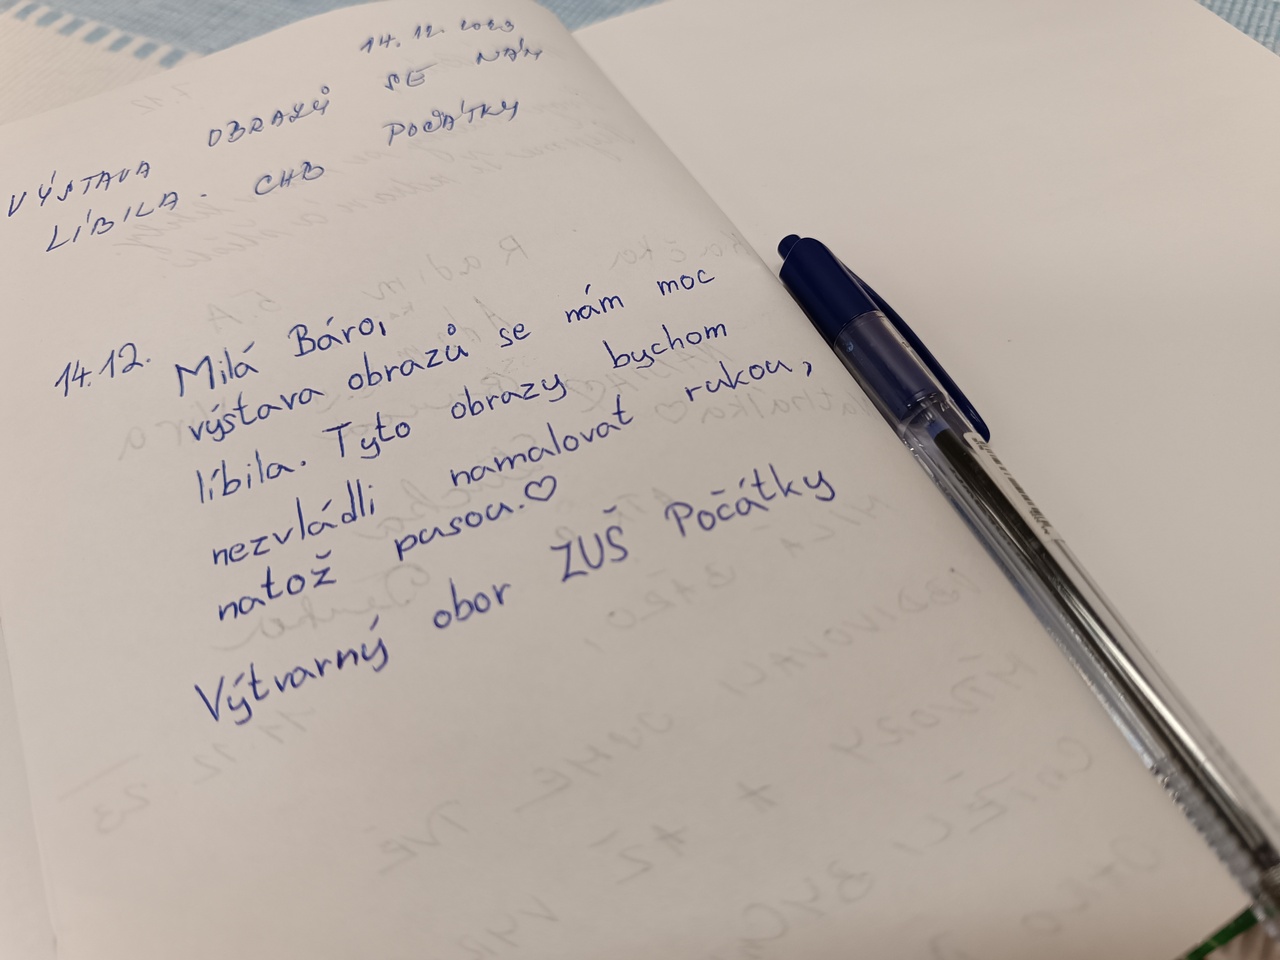 14. 12. 2023
VÝSTAVA OBRAZŮ SE NÁM
LÍBILA - CHB POČÁTKY
14.12. Milá Báro,
výstava obrazů se nám moc
líbila. Tyto obrazy bychom
nezvládli namalovat rukou,
natož pusou.♡
Výtvarný obor ZUŠ Počátky